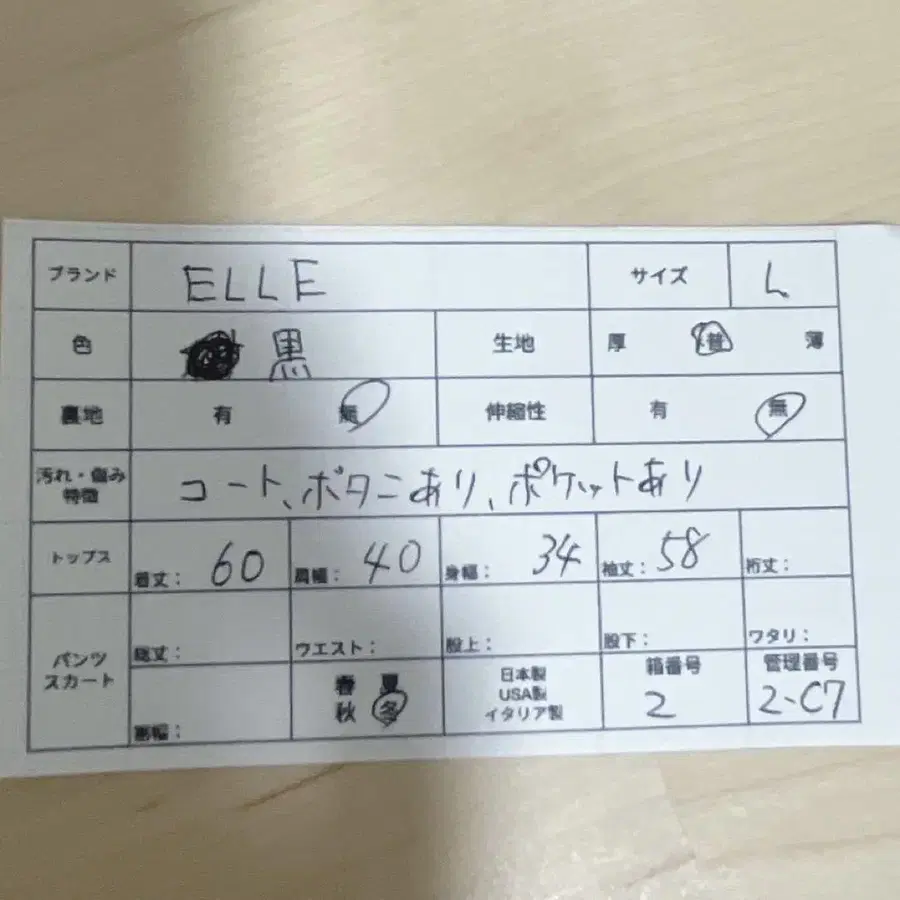 ブランド ELLE サイズ L
色 黒 生地 厚 普 薄
裏地 有 無 伸縮性 有 無
汚れ・傷み
特徴 コート、ボタンあり、ポケットあり
トップス 着丈: 60 肩幅: 40 身幅: 34 袖丈: 58 裄丈:
パンツ
スカート
総丈: ウエスト: 股上: 股下: ワタリ:
裾幅:
春 夏
秋 冬
日本製
USA製
イタリア製
箱番号
2
管理番号
2-C7